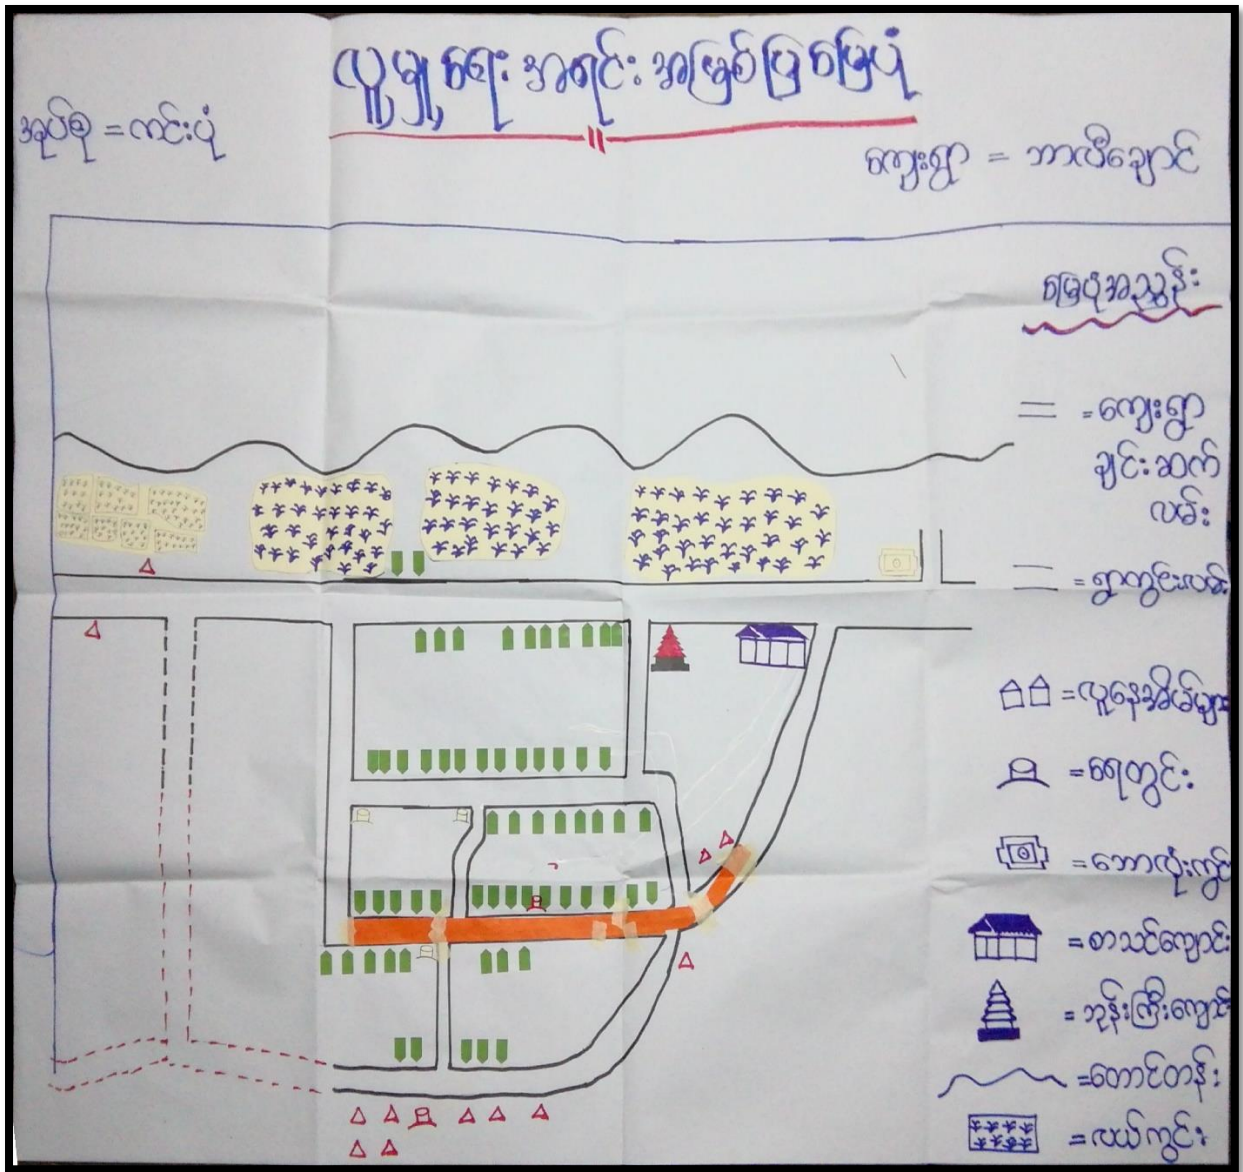 လူမှုရေး အရင်းအမြစ်ပြမြေပုံ
အုပ်စု = ကင်းပုံ
ကျေးရွာ = ဘာလီချောင်
မြေပုံအညွှန်း
= ကျေးရွာ
ချင်းဆက်
လမ်း
= ရွာတွင်းလမ်း
= လူနေအိမ်များ
= ရေတွင်း
= ဘောလုံးကွင်း
= စာသင်ကျောင်း
= ဘုန်းကြီးကျောင်း
= တောင်တန်း
= လယ်ကွင်း